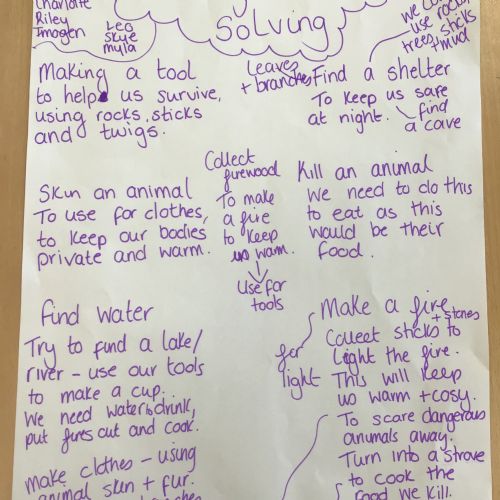 Charlotte
Riley
Imogen
Leo
Skye
Myla
Solving
use rocks,
trees, sticks
+ mud
Making a tool
to help us survive,
using rocks, sticks
and twigs.
Leaves
+ branches
Find a shelter
To keep us safe
at night.
find
a cave
Skin an animal
To use for clothes,
to keep our bodies
private and warm.
Collect
firewood
To make
a fire
to keep
us warm.
Use for
tools
Kill an animal
We need to do this
to eat as this
would be their
food.
Find water
Try to find a lake/
river - use our tools
to make a cup.
We need water to drink,
put fires out and cook.
Make clothes - using
animal skin + fur.
for
light
Make a fire
+ stones
Collect sticks to
Light the fire.
This will keep
us warm + cosy.
To scare dangerous
animals away.
Turn into a stove
to cook the
food we kill.